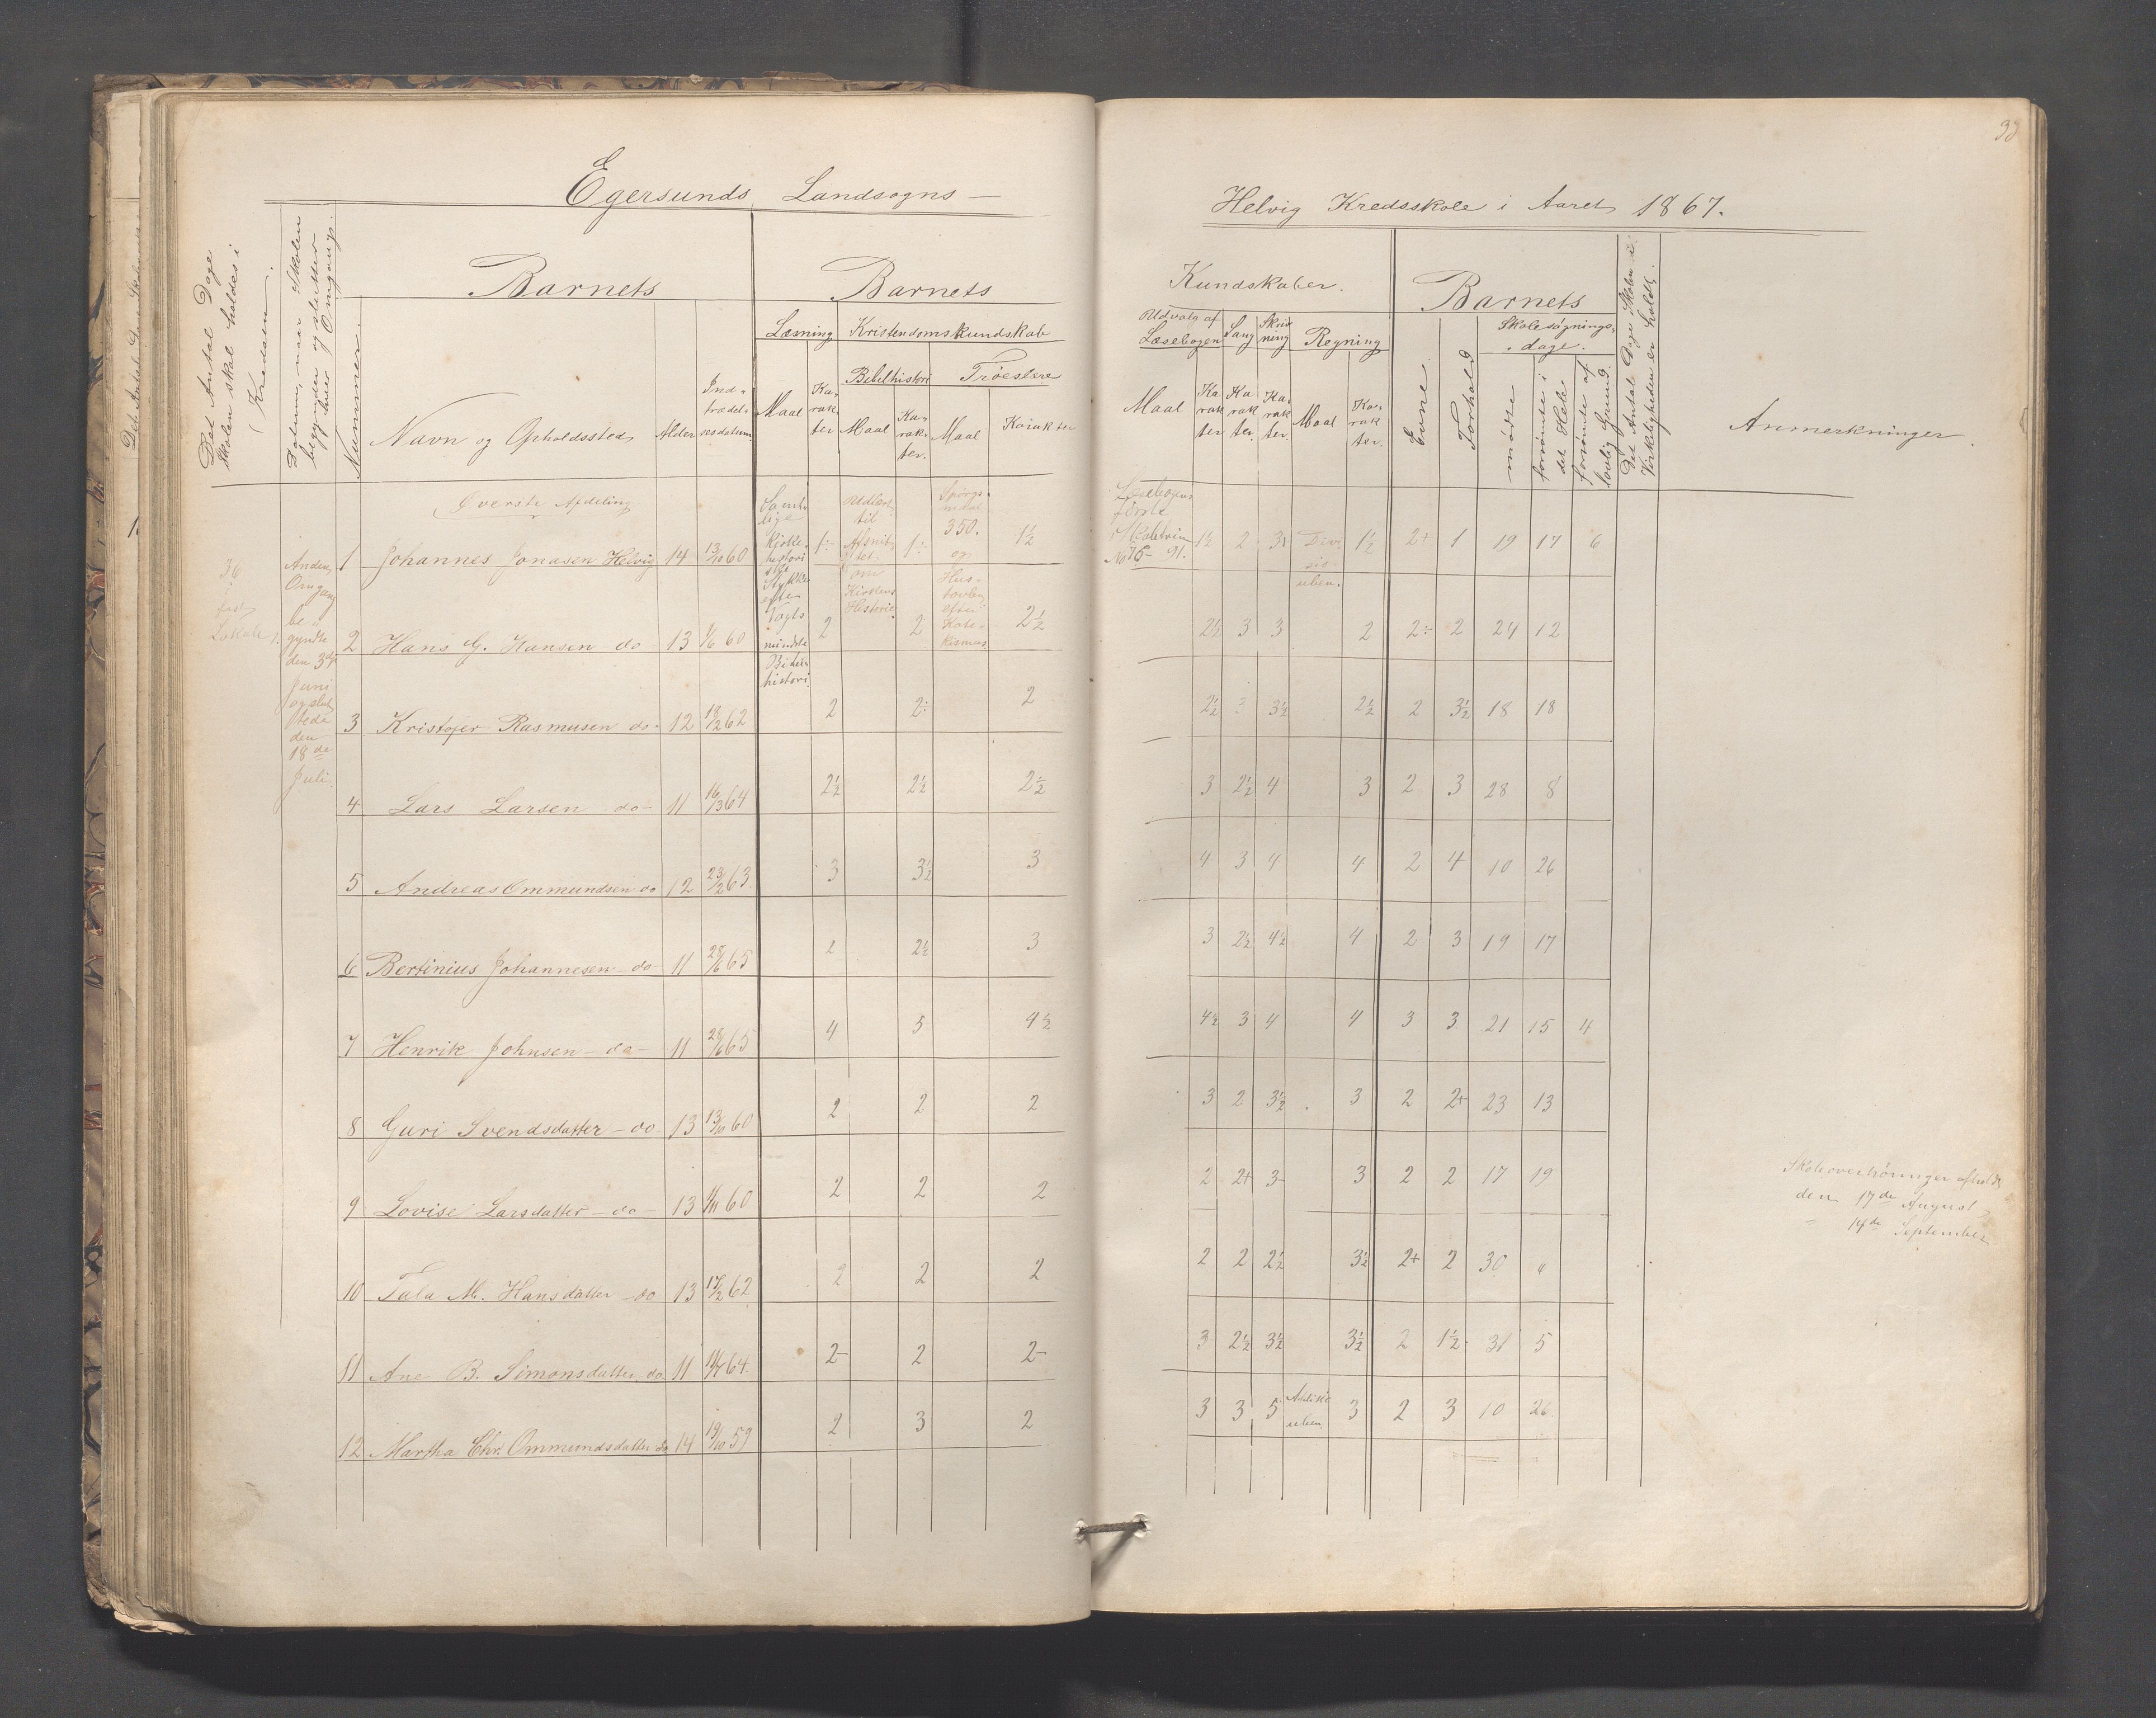 Egersunds Landsogns —
Helvig Kredsskole i Aaret 1867.
Det Antal Dage
Skolen skal holdes i
Kredsen.
Datum, naar Skolen
begynder og slutter
hver Omgang.
Nummer.
Barnets
Navn og Opholdssted
Alder
Ind-
trædel-
sesdatum
Barnets
Læsning
Kristendomskundskab
Bibelhistori
Troeslære
Maal
Ka-
rak-
ter
Maal
Ka-
rak-
ter.
Maal
Karakter
Kundskaber.
Udvalg af
Læsebogen
Sang
Skriv
ning
Regning
Maal
Ka
rak
ter
Ka
rak
ter.
Ka-
rak
ter.
Maal
Ka-
rak
ter.
Barnets
Evne
Forhold
Skolesøgnings-
dage.
mødte
forsømte i
det Hele
forsømte af
lovlig Grund.
Det Antal Dage Skolen i
Virkeligheden er holdt.
Anmerkninger.
Øverste Afdeling
36
i
fast
Lokale
Anden
Omgang
be-
gyndte
den 3de
Juni
og slut
tede
den
18de
Juli.
Samt-
lige
kirke-
histori
ske
Stykker
efter
Vogts
mindste
Bibel-
histori.
Udlært
til
Afsnit
tet
om
Kirkens
Historie
Spørgs-
maal
350.
og
Hus-
tavlen
efter
Kate-
kismus
Læsebogens
første
Skoletrin
No 75 - 91.
Divi
sio
nen.
1 Johannes Jonasen Helvig 14 13/10 60 1÷ 1÷ 1½ 1½ 2 3 1½ 2+ 1 19 17 6
2 Hans G. Hansen do 13 1/6 60 2 2 2½ 2½ 3 3 2 2÷ 2 24 12
3 Kristofer Rasmusen do 12 18/2 62 2 2÷ 2 2½ 3½ 2½ 2 3½ 18 18
4 Lars Larsen do — 11 16/3 64 2½ 2½ 2½ 3 2½ 4 3 2 3 28 8
5 Andreas Ommundsen do 12 23/2 63 3 3½ 3 4 3 4 4 2 4 10 26
6 Bertinius Johannesen do — 11 28/6 65 2 2½ 3 3 2½ 4½ 4 2 3 19 17
7 Henrik Johnsen — do — 11 28/6 65 4 5 4½ 4½ 3 4 4 3 3 21 15 4
8 Guri Svendsdatter — do 13 13/10 60 2 2 2 3 2 3½ 3 2 2+ 23 13
9 Lovise Larsdatter — do — 13 1/11 60 2 2 2 2 2+ 3- 3 2 2 17 19
10 Tala M. Hansdatter — do 13 17/2 62 2 2 2 2 2 2½ 3½ 2+ 2 30 "
11 Ane B. Simonsdatter do 11 64 2- 2 2- 3 2½ 3½ 3½ 2 1½ 31 5
12 Martha Chr. Ommundsdatter do 14 19/10 59 2 3 2 3 3 5 3 2 3 10 26
Skoleoverhøringer afholdt
den 17de August
" 14de September